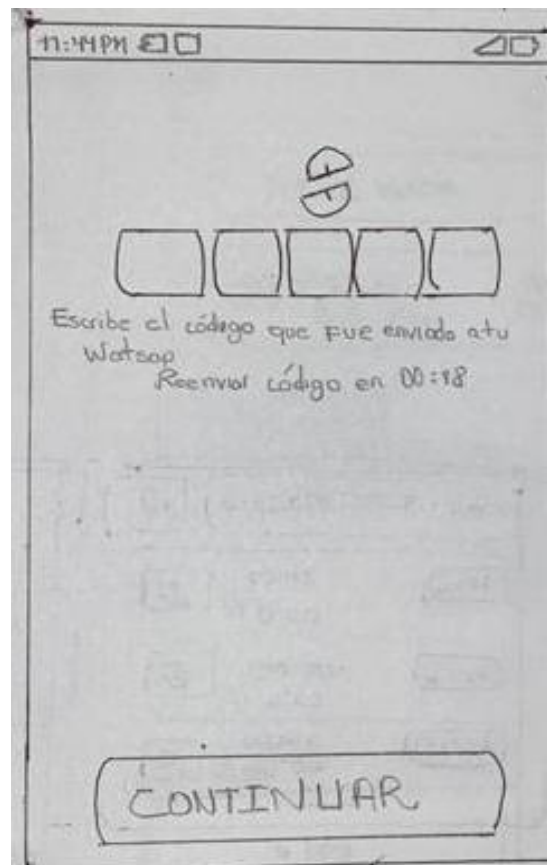 11:44PM
Escribe el código que fue enviado a tu
Watsap
Reenviar código en 00:18
CONTINUAR